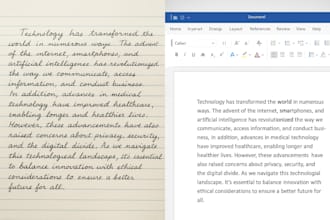 Technology has transformed the
world in numerous ways. The advent
of the internet, smartphones, and
artificial intelligence has revolutionized
the way we communicate, access
information, and conduct business.
In addition, advances in medical
technology have improved healthcare,
enabling longer and healthier lives.
However, these advancements have also
raised concerns about privacy, security,
and the digital divide. As we navigate
this technological landscape, its essential
to balance innovation with ethical
considerations to ensure a better
future for all.
Document
Home
Layout
References
Review
View
Help
Technology has transformed the world in numerous
ways. The advent of the internet, smartphones, and
artificial intelligence has revolutionized the way we
communicate, access information, and conduct busi-
ness, in addition, advances in medical technology
have improved healthcare, enabling longer and
healthier lives. However, these advancements have
also raised concerns about privacy, security, and
the digital divide. As we navigate this technological
landscape. It's essential to balance innovation with
ethical considerations to ensure a better future for
all.